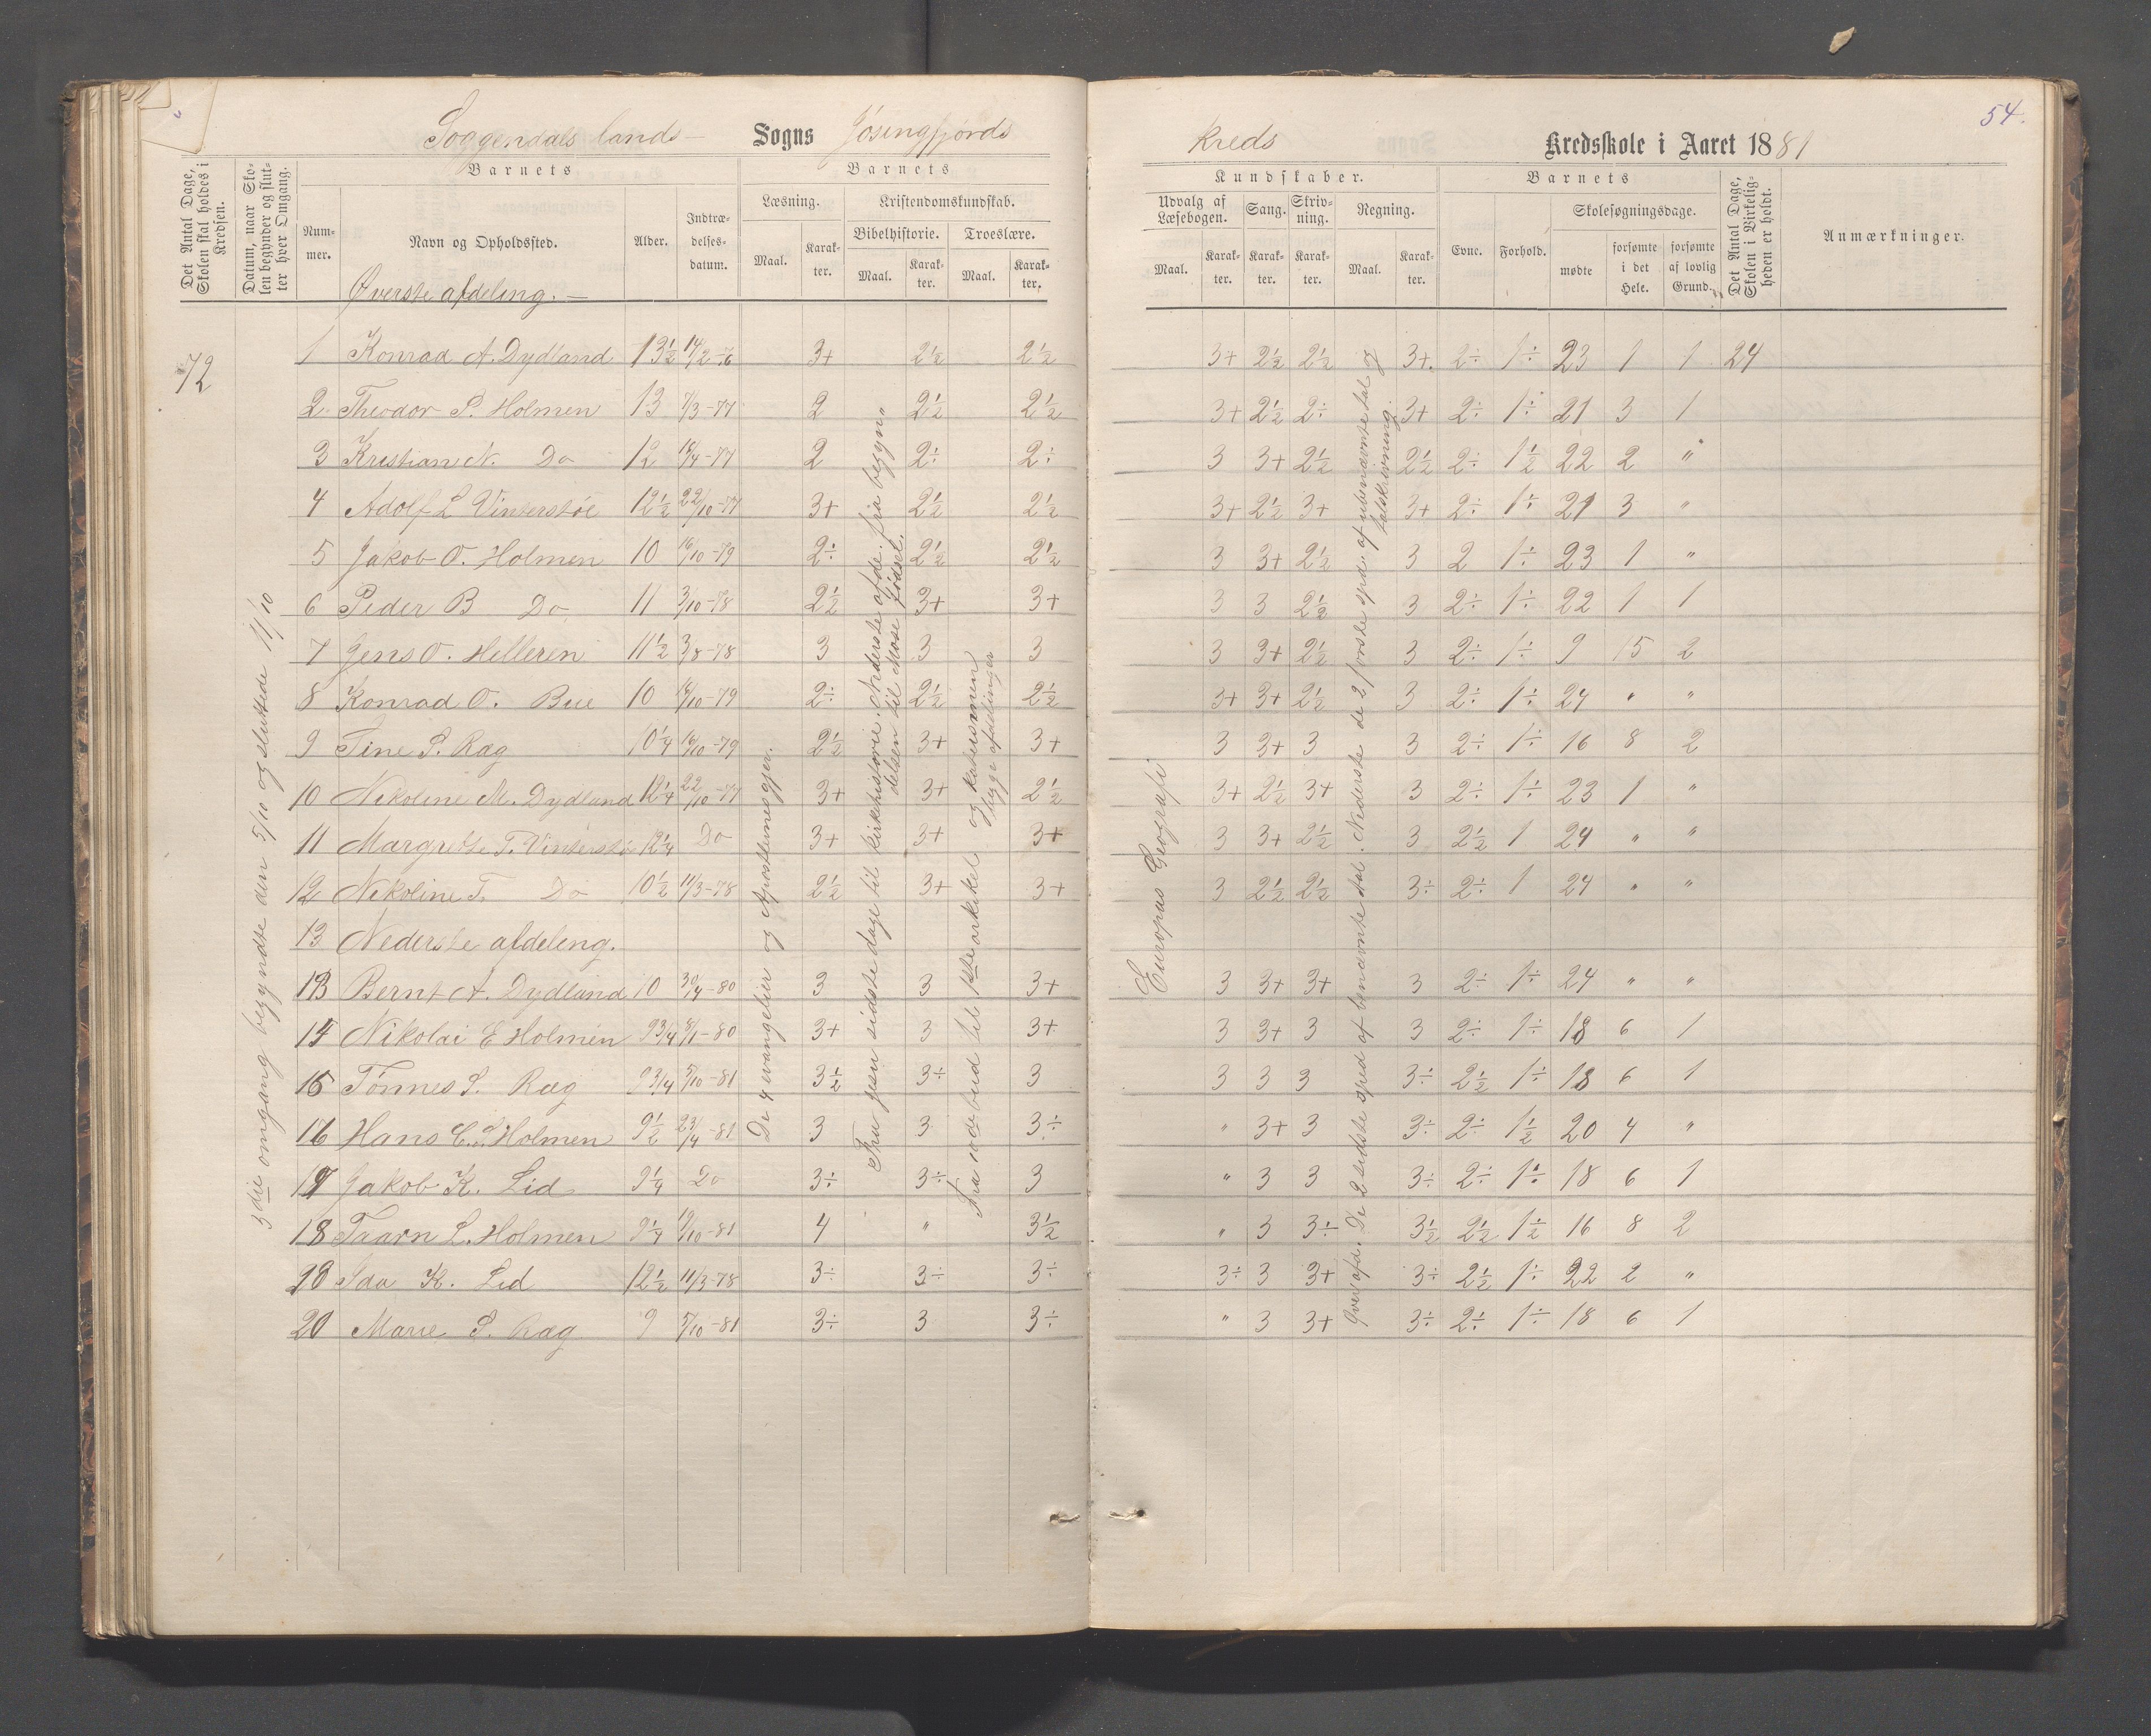 54.
Soggendals lands- Sogns Jösingfjords
kreds Kredsskole i Aaret 1881
Det Antal Dage, Skolen skal holdes i Kredsen.
Datum, naar Skolen begynder og slutter hver Omgang.
Barnets
Nummer.
Navn og Opholdssted.
Alder.
Indtrædelsesdatum.
Barnets
Læsning.
Maal.
Karakter.
Kristendomskundskab.
Bibelhistorie.
Maal.
Karakter.
Troeslære.
Maal.
Karakter.
Kundskaber.
Udvalg af Læsebogen.
Maal.
Karakter.
Sang.
Karakter.
Skrivning.
Karakter.
Regning.
Maal.
Karakter.
Barnets
Evne.
Forhold.
Skolesøgningsdage.
mødte
forsømte i det Hele.
forsømte af lovlig Grund.
Det Antal Dage, Skolen i Virkeligheden er holdt.
Anmærkninger.
Øverste afdeling. —
72
3die omgang begyndte den 5/10 og sluttede 11/10
1 Konrad A. Dydland 13½ 14/2-76 3+ 2½ 2½ 3+ 2½ 2½ 3+. 2÷ 1÷ 23 1 1 24
2 Theodor P. Holmen 13 7/3-77 2 2½ 2½ 3+ 2½ 2÷ 3+ 2÷ 1÷ 21 3 1
3 Kristian N. Do 12 18/4-77 2 2÷ 2÷ 3 3+ 2½ 2½ 2÷ 1½ 22 2 "
4 Adolf L Vinterstøe 12½ 22/10-77 3+ 2½ 2½ 3+ 2½ 3+ 3+ 2÷ 1÷ 21 3 "
5 Jakob O. Holmen 10 16/10-79 2÷ 2½ 2½ 3 3+ 2½ 3 2 1÷ 23 1 "
6 Peder B Do 11 3/10-78 2½ 3+ 3+ 3 3 2½ 3 2÷ 1÷ 22 1 1
7 Jens O. Helleren 11½ 3/8-78 3 3 3 3 3+ 2½ 3 2÷ 1÷ 9 15 2
8 Konrad O. Bue 10 16/10-79 2÷ 2½ 2½ 3+ 3+ 2½ 3 2÷ 1÷ 24 " "
9 Tine P. Ræg 10¼ 16/10-79 2½ 3+ 3+ 3 3+ 3 3 2÷ 1÷ 16 8 2
10 Nikoline M. Dydland 12¼ 22/10-77 3+ 3+ 2½ 3+ 2½ 3+ 3 2÷ 1÷ 23 1 "
11 Margrethe T. Vinterstø 12¼ Do 3+ 3+ 3+ 3 3+ 2½ 3 2½ 1 24 " "
12 Nikoline T. Do 10½ 11/3-78 2½ 3+ 3+ 3 2½ 2½ 3÷ 2÷ 1 24 " "
13 Nederste afdeling.
13 Bernt A. Dydland 10 30/4-80 3 3 3+ 3 3+ 3+ 3 2÷ 1÷ 24 " "
14 Nikolai E Holmen 9¾ 8/1-80 3+ 3 3+ 3 3+ 3 3 2÷ 1÷ 18 6 1
15 Tönnes S. Ræg 9¾ 5/10-81 3½ 3÷ 3 3 3 3 3÷ 2½ 1÷ 18 6 1
16 Hans C. Holmen 9½ 23/4-81 3 3 3÷ " 3+ 3 3÷ 2÷ 1½ 20 4 "
17 Jakob K. Lid 9¼ Do 3÷ 3÷ 3 " 3 3 3÷ 2÷ 1÷ 18 6 1
18 Taarn L. Holmen 9¼ 19/10-81 4 " 3½ " 3 3÷ 3½ 2½ 1½ 16 8 2
19 Ida K. Lid 12½ 11/3-78 3÷ 3÷ 3÷ 3÷ 3 3+ 3÷ 2½ 1÷ 22 2 "
20 Marie S. Ræg 9 5/10-81 3÷ 3 3÷ " 3 3+ 3÷ 2÷ 1÷ 18 6 1
De 4 evangelier og Apostlernesgjer.
Fra Jesu sidste dage til kirkehistorie. Nederste afde. fra begyndelsen til Mose fødsel.
Fra 10de bud til 1ste artikel og katekismen begge afdelinger
Europas Geografi
Øver.afd. De 2 sidste sped af benævnte tal. Nederste de 2 første spd. af ubenævnte tal og talskrivning.